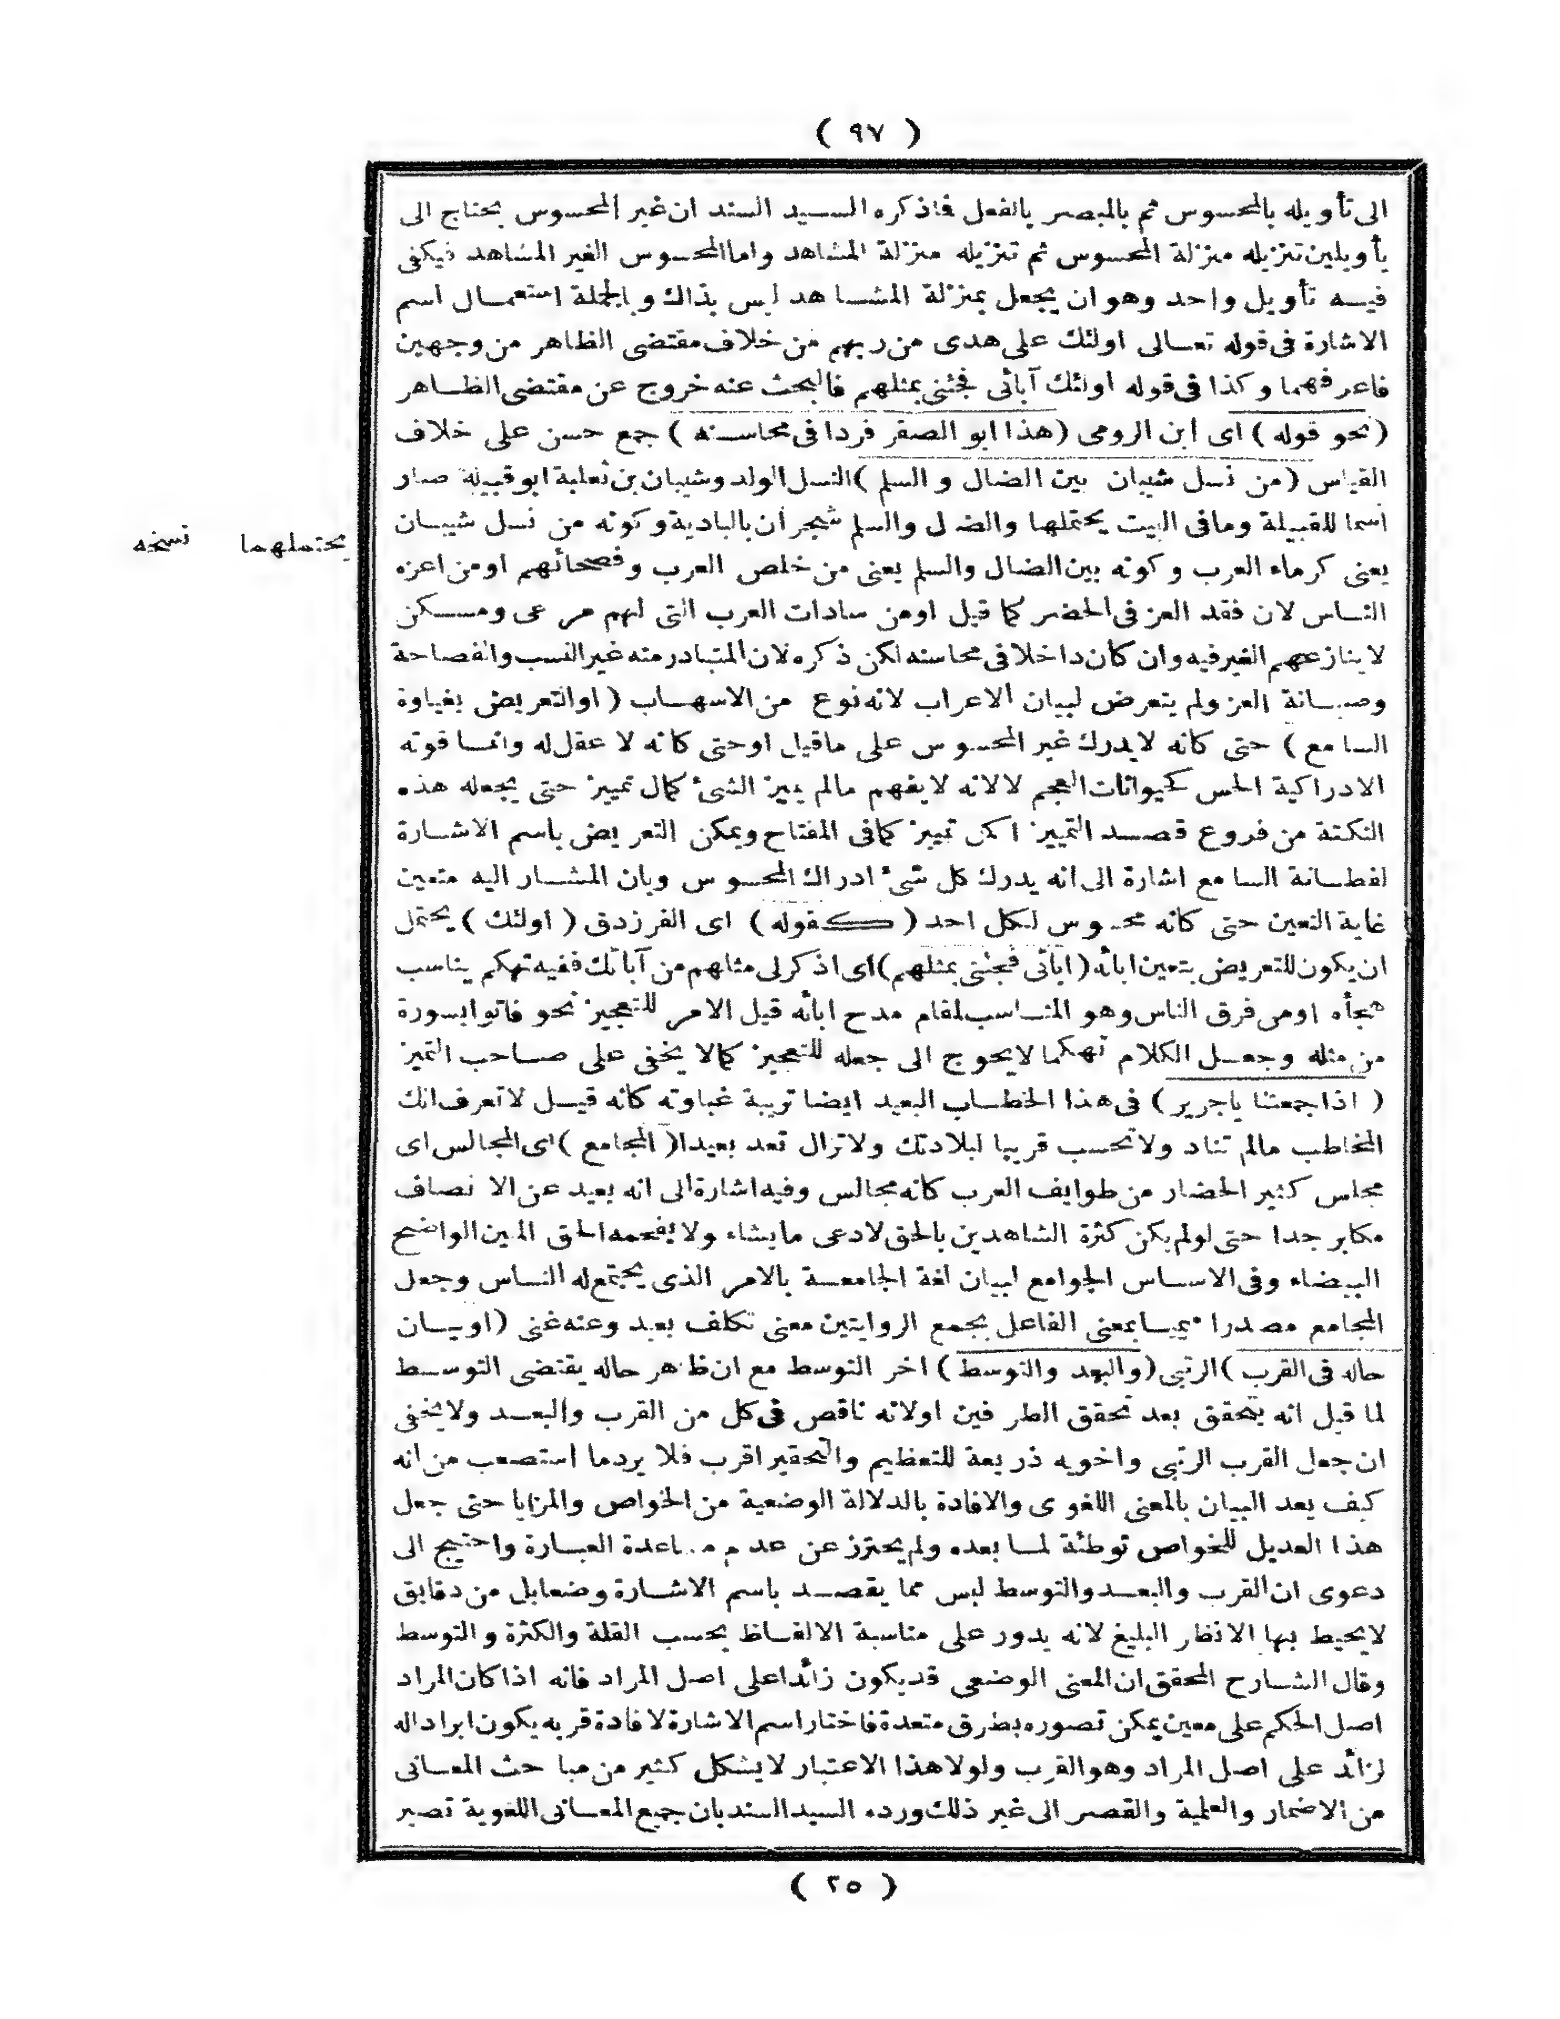 ( ٩٧ )
الى تأويله بالمحسوس ثم بالمبصر بالفعل فاذكره السيد السند ان غير المحسوس يحتاج الى
تأويلين تنزيله منزلة المحسوس ثم تنزيله منزلة المشاهد واما المحسوس الغير المشاهد فيكفى
فيه تأويل واحد وهو ان يجعل بمنزلة المشاهد ليس بذاك وبالجملة استعمال اسم
الاشارة فى قوله تعالى اولئك على هدى من ربهم من خلاف مقتضى الظاهر من وجهين
فاعرفهما وكذا فى قوله اولئك آبائى فجئنى بمثلهم فالبحث عنه خروج عن مقتضى الظاهر
( نحو قوله ) اى ابن الرومى ( هذا ابو الصقر فردا فى محاسنه ) جمع حسن على خلاف
القياس ( من نسل شيبان بين الضال والسلم ) النسل الولد وشيبان بن ثعلبة ابو قبيلة صار
اسما للقبيلة وما فى البيت يحتملها والضال والسلم شجران بالبادية وكونه من نسل شيبان
يحتملهما نسخه
يعنى كرماء العرب وكونه بين الضال والسلم يعنى من خلص العرب وفصحائهم او من اعزه
الناس لان فقد العز فى الحضر كما قيل او من سادات العرب التى لهم مرعى ومسكن
لا ينازعهم الغير فيه وان كان داخلا فى محاسنه لكن ذكره لان المتبادر منه غير النسب والفصاحة
وصيانة العز ولم يتعرض لبيان الاعراب لانه نوع من الاسهاب ( او التعريض بغباوة
السامع ) حتى كانه لا يدرك غير المحسوس على ماقيل او حتى كانه لا عقل له وانما قوته
الادراكية الحس كحيوانات العجم لا لانه لا يفهم مالم يميز الشئ كمال تمييز حتى يجعله هذه
النكتة من فروع قصد التمييز اكمل تمييز كما فى المفتاح ويمكن التعريض باسم الاشارة
لفطانة السامع اشارة الى انه يدرك كل شىء ادراك المحسوس وبان المشار اليه متعين
غاية التعين حتى كانه محسوس لكل احد ( كقوله ) اى الفرزدق ( اولئك ) يحتمل
ان يكون للتعريض بتعين ابائه ( ابائى فجئنى بمثلهم ) اى اذكر لى مثلهم من آبائك ففيه تهكم يناسب
هجأه او من فرق الناس وهو المناسب لمقام مدح ابائه قيل الامر للتعجيز نحو فاتوا بسورة
من مثله وجعل الكلام تهكما لا يحوج الى جعله للتعجيز كما لا يخفى على صاحب التميز
( اذا جمعتنا يا جرير ) فى هذا الخطاب البعيد ايضا تربية غباوته كانه قيل لا تعرف انك
المخاطب مالم تناد ولا تحسب قريبا لبلادتك ولا تزال تعد بعيدا ( المجامع ) اى المجالس اى
مجلس كثير الحضار من طوايف العرب كانه مجالس وفيه اشارة الى انه بعيد عن الانصاف
مكابر جدا حتى لو لم يكن كثرة الشاهدين بالحق لادعى ما يشاء ولا يفحمه الحق المبين الواضح
البيضاء وفى الاساس الجوامع لبيان لغة الجامعة بالامر الذى يجتمع له الناس وجعل
المجامع مصدرا ميميا بمعنى الفاعل بجمع الروايتين معنى تكلف بعيد وعنه غنى ( او بيان
حاله فى القرب ) الرتبى ( والبعد والتوسط ) اخر التوسط مع ان ظاهر حاله يقتضى التوسط
لما قيل انه يتحقق بعد تحقق الطرفين او لانه ناقص فى كل من القرب والبعد ولا يخفى
ان جعل القرب الرتبى واخويه ذريعة للتعظيم والتحقير اقرب فلا يرد ما استصعب من انه
كيف يعد البيان بالمعنى اللغوى والافادة بالدلالة الوضعية من الخواص والمزايا حتى جعل
هذا العديل للخواص توطئة لما بعده ولم يحترز عن عدم مساعدة العبارة واحتيج الى
دعوى ان القرب والبعد والتوسط ليس مما يقصد باسم الاشارة وضعا بل من دقايق
لا يحيط بها الا نظار البليغ لانه يدور على مناسبة الالفاظ بحسب القلة والكثرة والتوسط
وقال الشارح المحقق ان المعنى الوضعى قد يكون زائدا على اصل المراد فانه اذا كان المراد
اصل الحكم على معين يمكن تصوره بطرق متعدة فاختار اسم الاشارة لافادة قربه يكون ايرادا له
لزائد على اصل المراد وهو القرب ولولا هذا الاعتبار لا يشكل كثير من مباحث المعانى
من الاضمار والعلمية والقصر الى غير ذلك ورده السيد السند بان جميع المعانى اللغوية تصير
( ٢٥ )